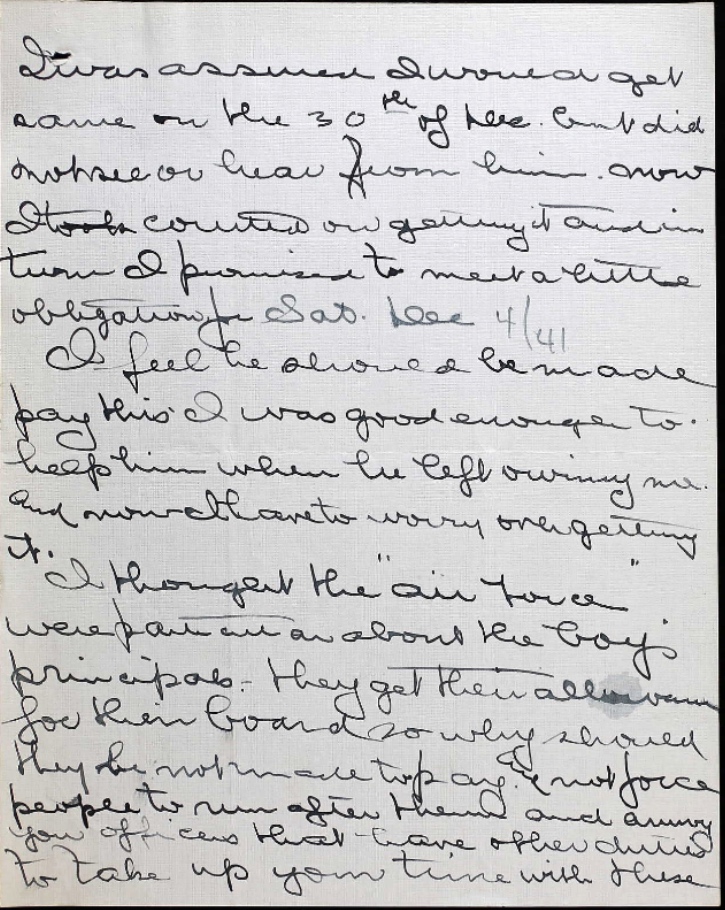 I was assured I would get
same on the 30th of Dec. but did
not see or hear from him. now
I took counted on getting it and in
turn I promised to meet a little
obligation for Sat. Dec 4/41
I feel he should be made
pay this I was good enough to
help him when he left owing me.
and now I have to worry over getting
it. I thought the "air force"
were particular about the boy's
principals - they get their allowance
for their board so why should
they be not made to pay. & not force
people to run after them and annoy
you officers that have other duties
to take up your time with these